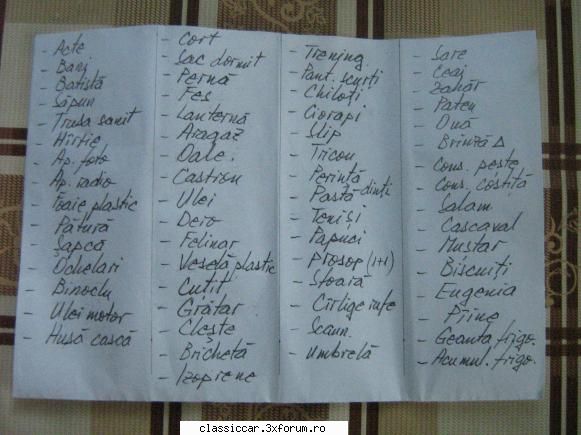 - Acte
- Bani
- Batistă
- Săpun
- Trusa sanit
- Hîrtie
- Ap. foto
- Ap. radio
- Foaie plastic
- Pătură
- Șapcă
- Ochelari
- Binoclu
- Ulei motor
- Husă cască
- Cort
- Sac dormit
- Pernă
- Fes
- Lanternă
- Aragaz
- Oale.
- Castron
- Ulei
- Dero
- Felinar
- Veselă plastic
- Cuțit
- Grătar
- Clește
- Brichetă
- Izoprene
- Trening
- Pant. scurți
- Chiloți
- Ciorapi
- Slip
- Tricou
- Periuță
- Pastă dinți
- Teniși
- Papuci
- Prosop (1+1)
- Sfoară
- Cîrlige rufe
- Scaun.
- Umbrelă
- Sare
- Ceai
- Zahăr
- Pateu
- Ouă
- Brînză Δ
- Cons. pește
- Cons. costiță
- Salam
- Cascaval
- Mustar
- Biscuiți
- Eugenia
- Pîine
- Geanta frigo.
- Acumul. frigo.
classiccar.3xforum.ro